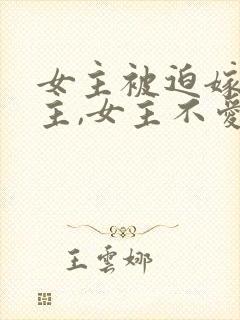 女主被迫嫁
主,女主不爱
王雲娜